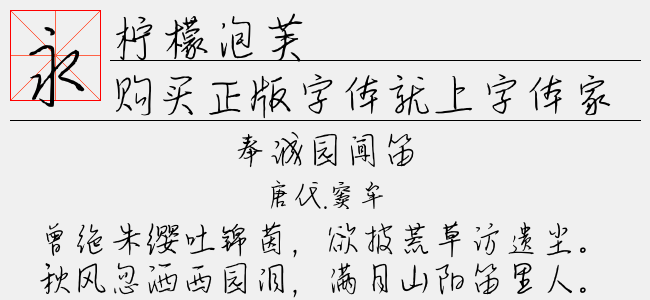 永
柠檬泡芙
购买正版字体就上字体家
奉诚园闻笛
唐代.窦牟
曾绝朱缨吐锦茵，欲披荒草访遗尘。
秋风忽洒西园泪，满目山阳笛里人。